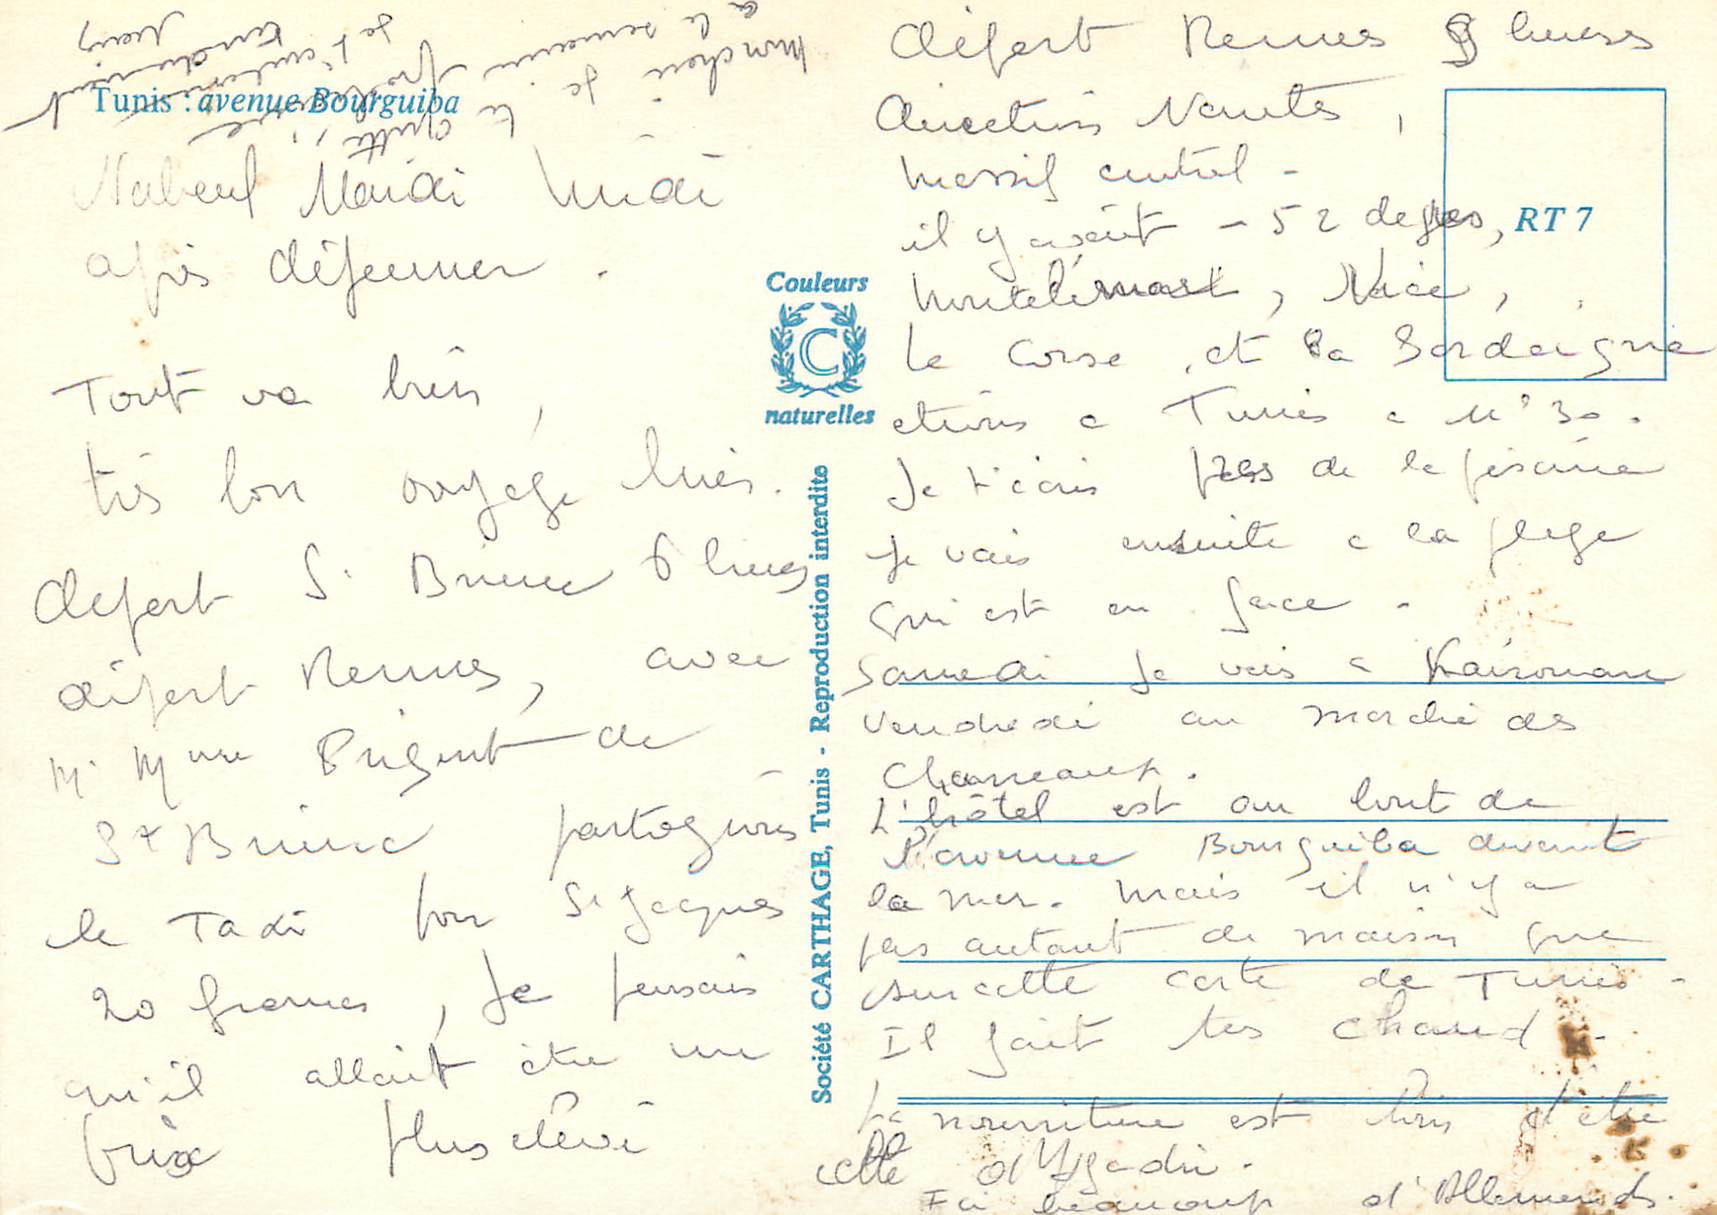 Tunis : avenue Bourguiba
Nabeul Mardi Midi
après déjeuner.
Tout va bien,
très bon voyage hier.
départ St Brieuc 6 heures
départ Rennes, avec
Mr Mme Prigent de
St Brieuc partageons
le Taxi pour St Jacques
20 francs, Je pensais
qu'il allait être un
prix plus élevé
Couleurs
C
naturelles
Société CARTHAGE, Tunis - Reproduction interdite
RT 7
départ Rennes 9 heures
direction Nantes,
Massif central -
il y avait - 52 degrés,
Montélimart, Nice,
la Corse, et la Sardaigne
étions a Tunis a 11h30.
Je t'écris près de la piscine
Je vais ensuite a la plage
qui est en face -
Samedi Je vais a Kairouan
Vendredi au marché des
Chameaux.
L'hôtel est au bout de
l'avenue Bourguiba devant
la mer. Mais il n'y a
pas autant de maison que
sur cette carte de Tunis -
Il fait très chaud -
La nourriture est loin d'être
celle d'Agadir.
Ici beaucoup d'Allemands.